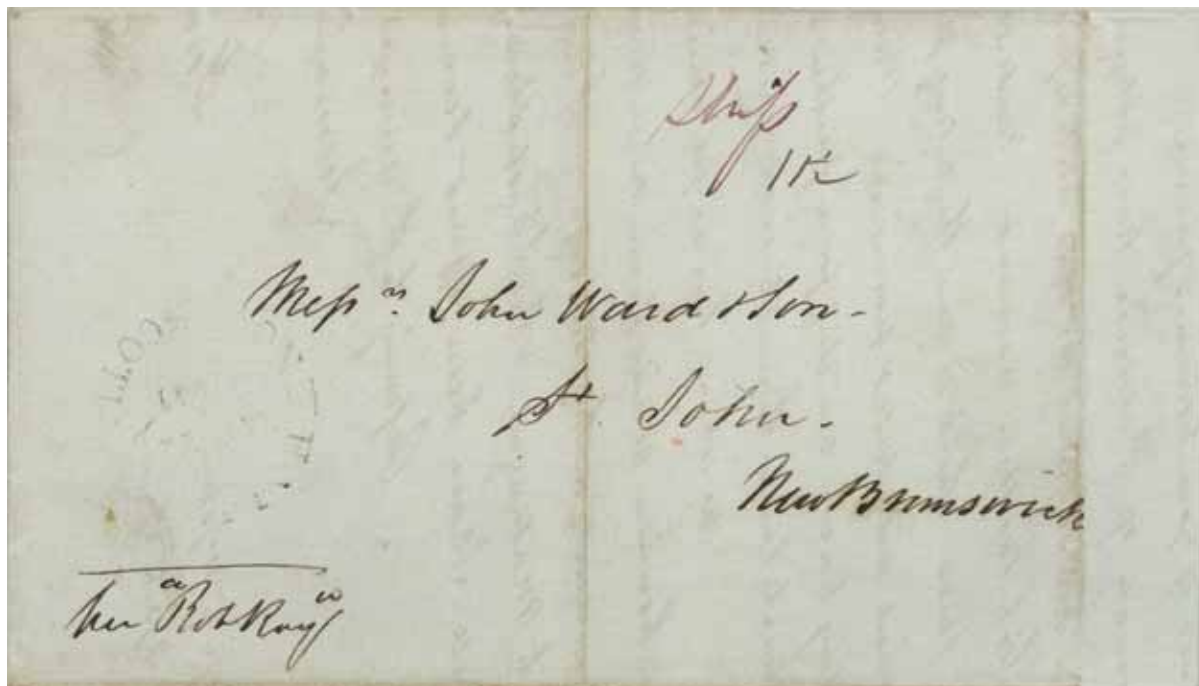 Ship
Messrs. John Ward & Son -
St. John -
New Brunswick
Per "Rob Roy"